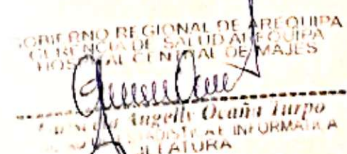 GOBIERNO REGIONAL DE AREQUIPA
GERENCIA DE SALUD AREQUIPA
HOSPITAL CENTRAL DE MAJES
Angelly Ocaña Turpo
E INFORMATICA
JEFATURA